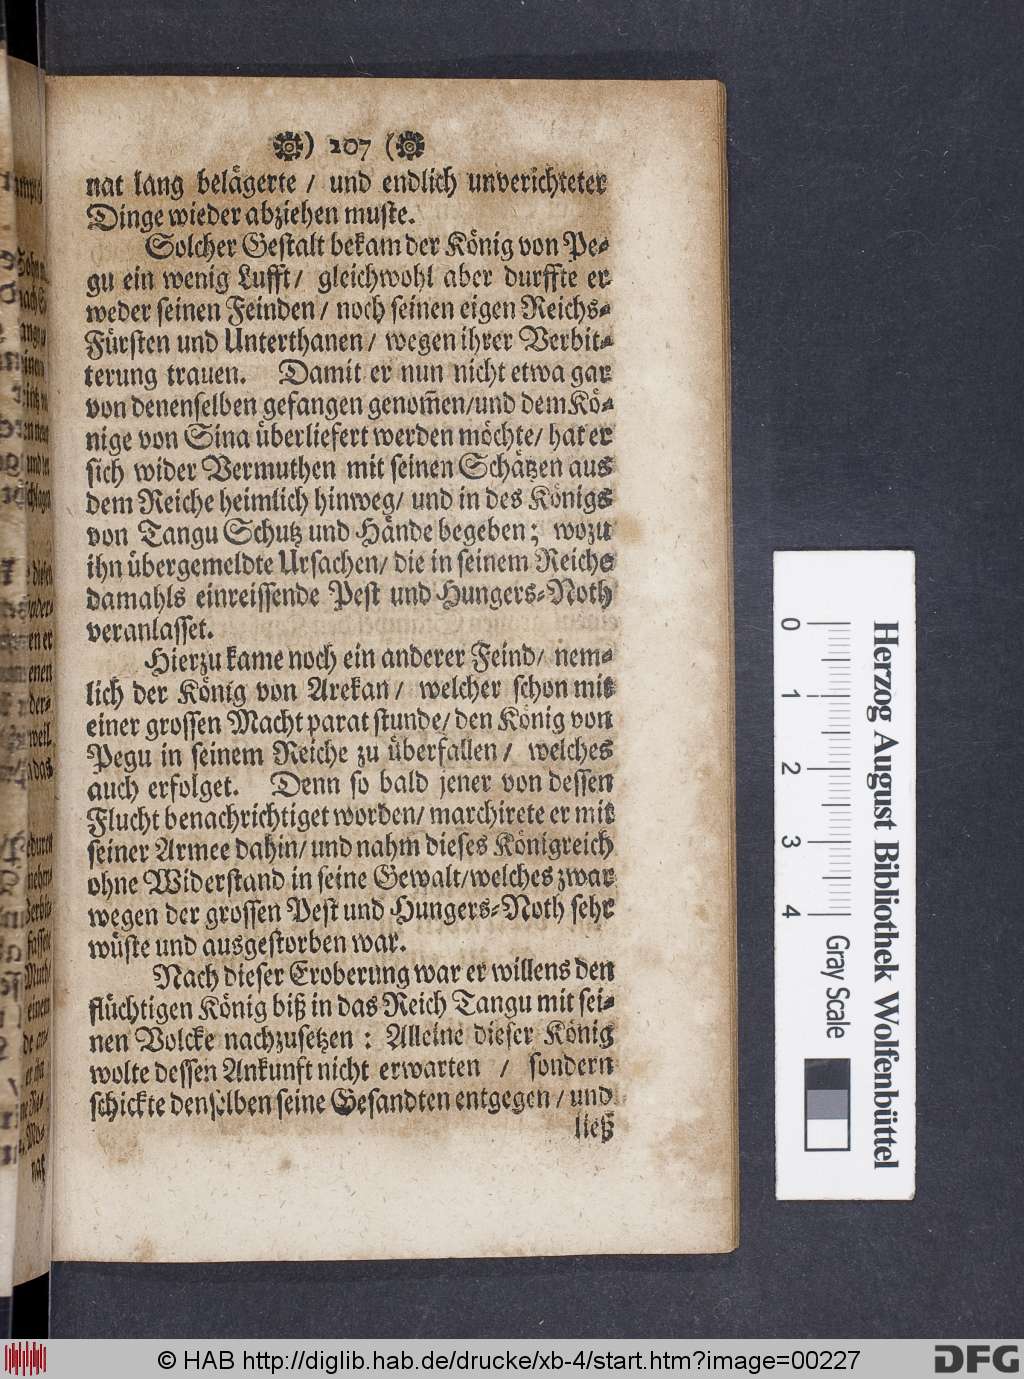 ) 207 (
nat lang belägerte / und endlich unverichteter
Dinge wieder abziehen muste.
Solcher Gestalt bekam der König von Pe-
gu ein wenig Lufft / gleichwohl aber durffte er
weder seinen Feinden / noch seinen eigen Reichs-
Fürsten und Unterthanen / wegen ihrer Verbit-
terung trauen. Damit er nun nicht etwa gar
von denenselben gefangen genom̃en/und dem Kö-
nige von Sina überliefert werden möchte/ hat er
sich wider Vermuthen mit seinen Schätzen aus
dem Reiche heimlich hinweg/ und in des Königs
von Tangu Schutz und Hände begeben; wozu
ihn übergemeldte Ursachen/ die in seinem Reiche
damahls einreissende Pest und Hungers-Noth
veranlasset.
Hierzu kame noch ein anderer Feind/ nem-
lich der König von Arekan / welcher schon mit
einer grossen Macht parat stunde/ den König von
Pegu in seinem Reiche zu überfallen / welches
auch erfolget. Denn so bald jener von dessen
Flucht benachrichtiget worden/ marchirete er mit
seiner Armee dahin/ und nahm dieses Königreich
ohne Widerstand in seine Gewalt/welches zwar
wegen der grossen Pest und Hungers-Noth sehr
wüste und ausgestorben war.
Nach dieser Eroberung war er willens den
flüchtigen König biß in das Reich Tangu mit sei-
nen Volcke nachzusetzen : Alleine dieser König
wolte dessen Ankunft nicht erwarten / sondern
schickte denselben seine Gesandten entgegen / und
ließ
Herzog August Bibliothek Wolfenbüttel
0 1 2 3 4 Gray Scale
© HAB http://diglib.hab.de/drucke/xb-4/start.htm?image=00227
DFG